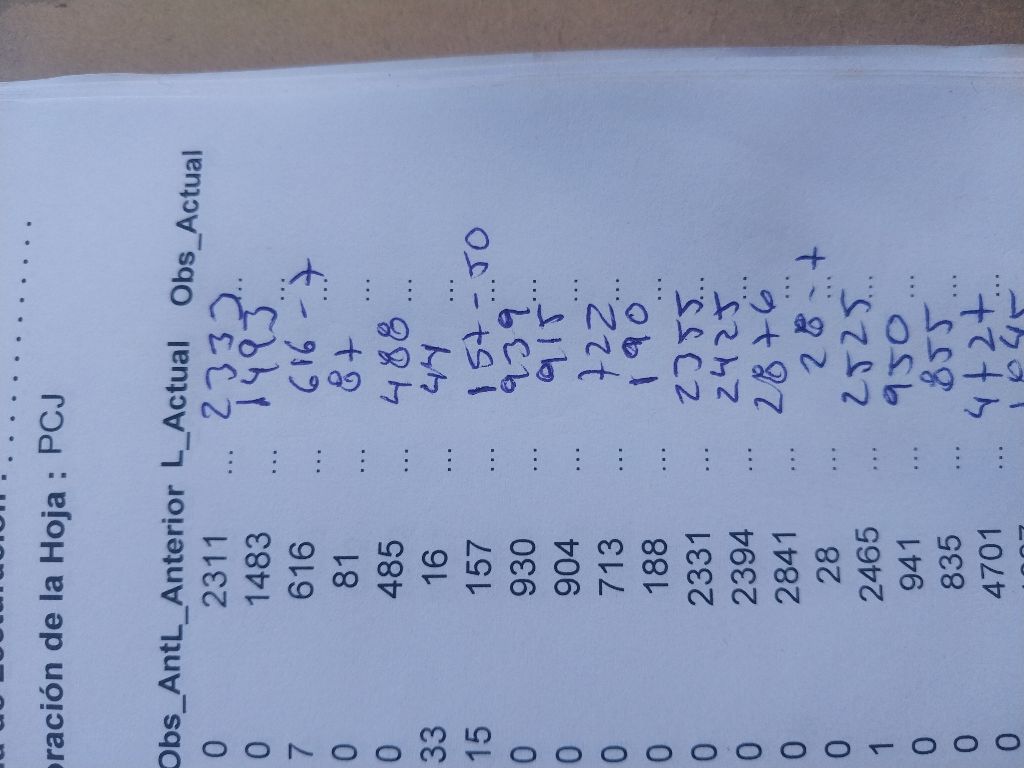 oración de la Hoja : PCJ
Obs_Ant L_Anterior L_Actual Obs_Actual
0 2311 ... 2333 ...
0 1483 ... 1493 ...
7 616 ... 616 - 7 ...
0 81 ... 87 ...
0 485 ... 488 ...
33 16 ... 44 ...
15 157 ... 157 - 50 ...
0 930 ... 939 ...
0 904 ... 915 ...
0 713 ... 722 ...
0 188 ... 190 ...
0 2331 ... 2355 ...
0 2394 ... 2425 ...
0 2841 ... 2876 ...
0 28 ... 28 - 7 ...
1 2465 ... 2525 ...
0 941 ... 950 ...
0 835 ... 855 ...
0 4701 ... 4727 ...